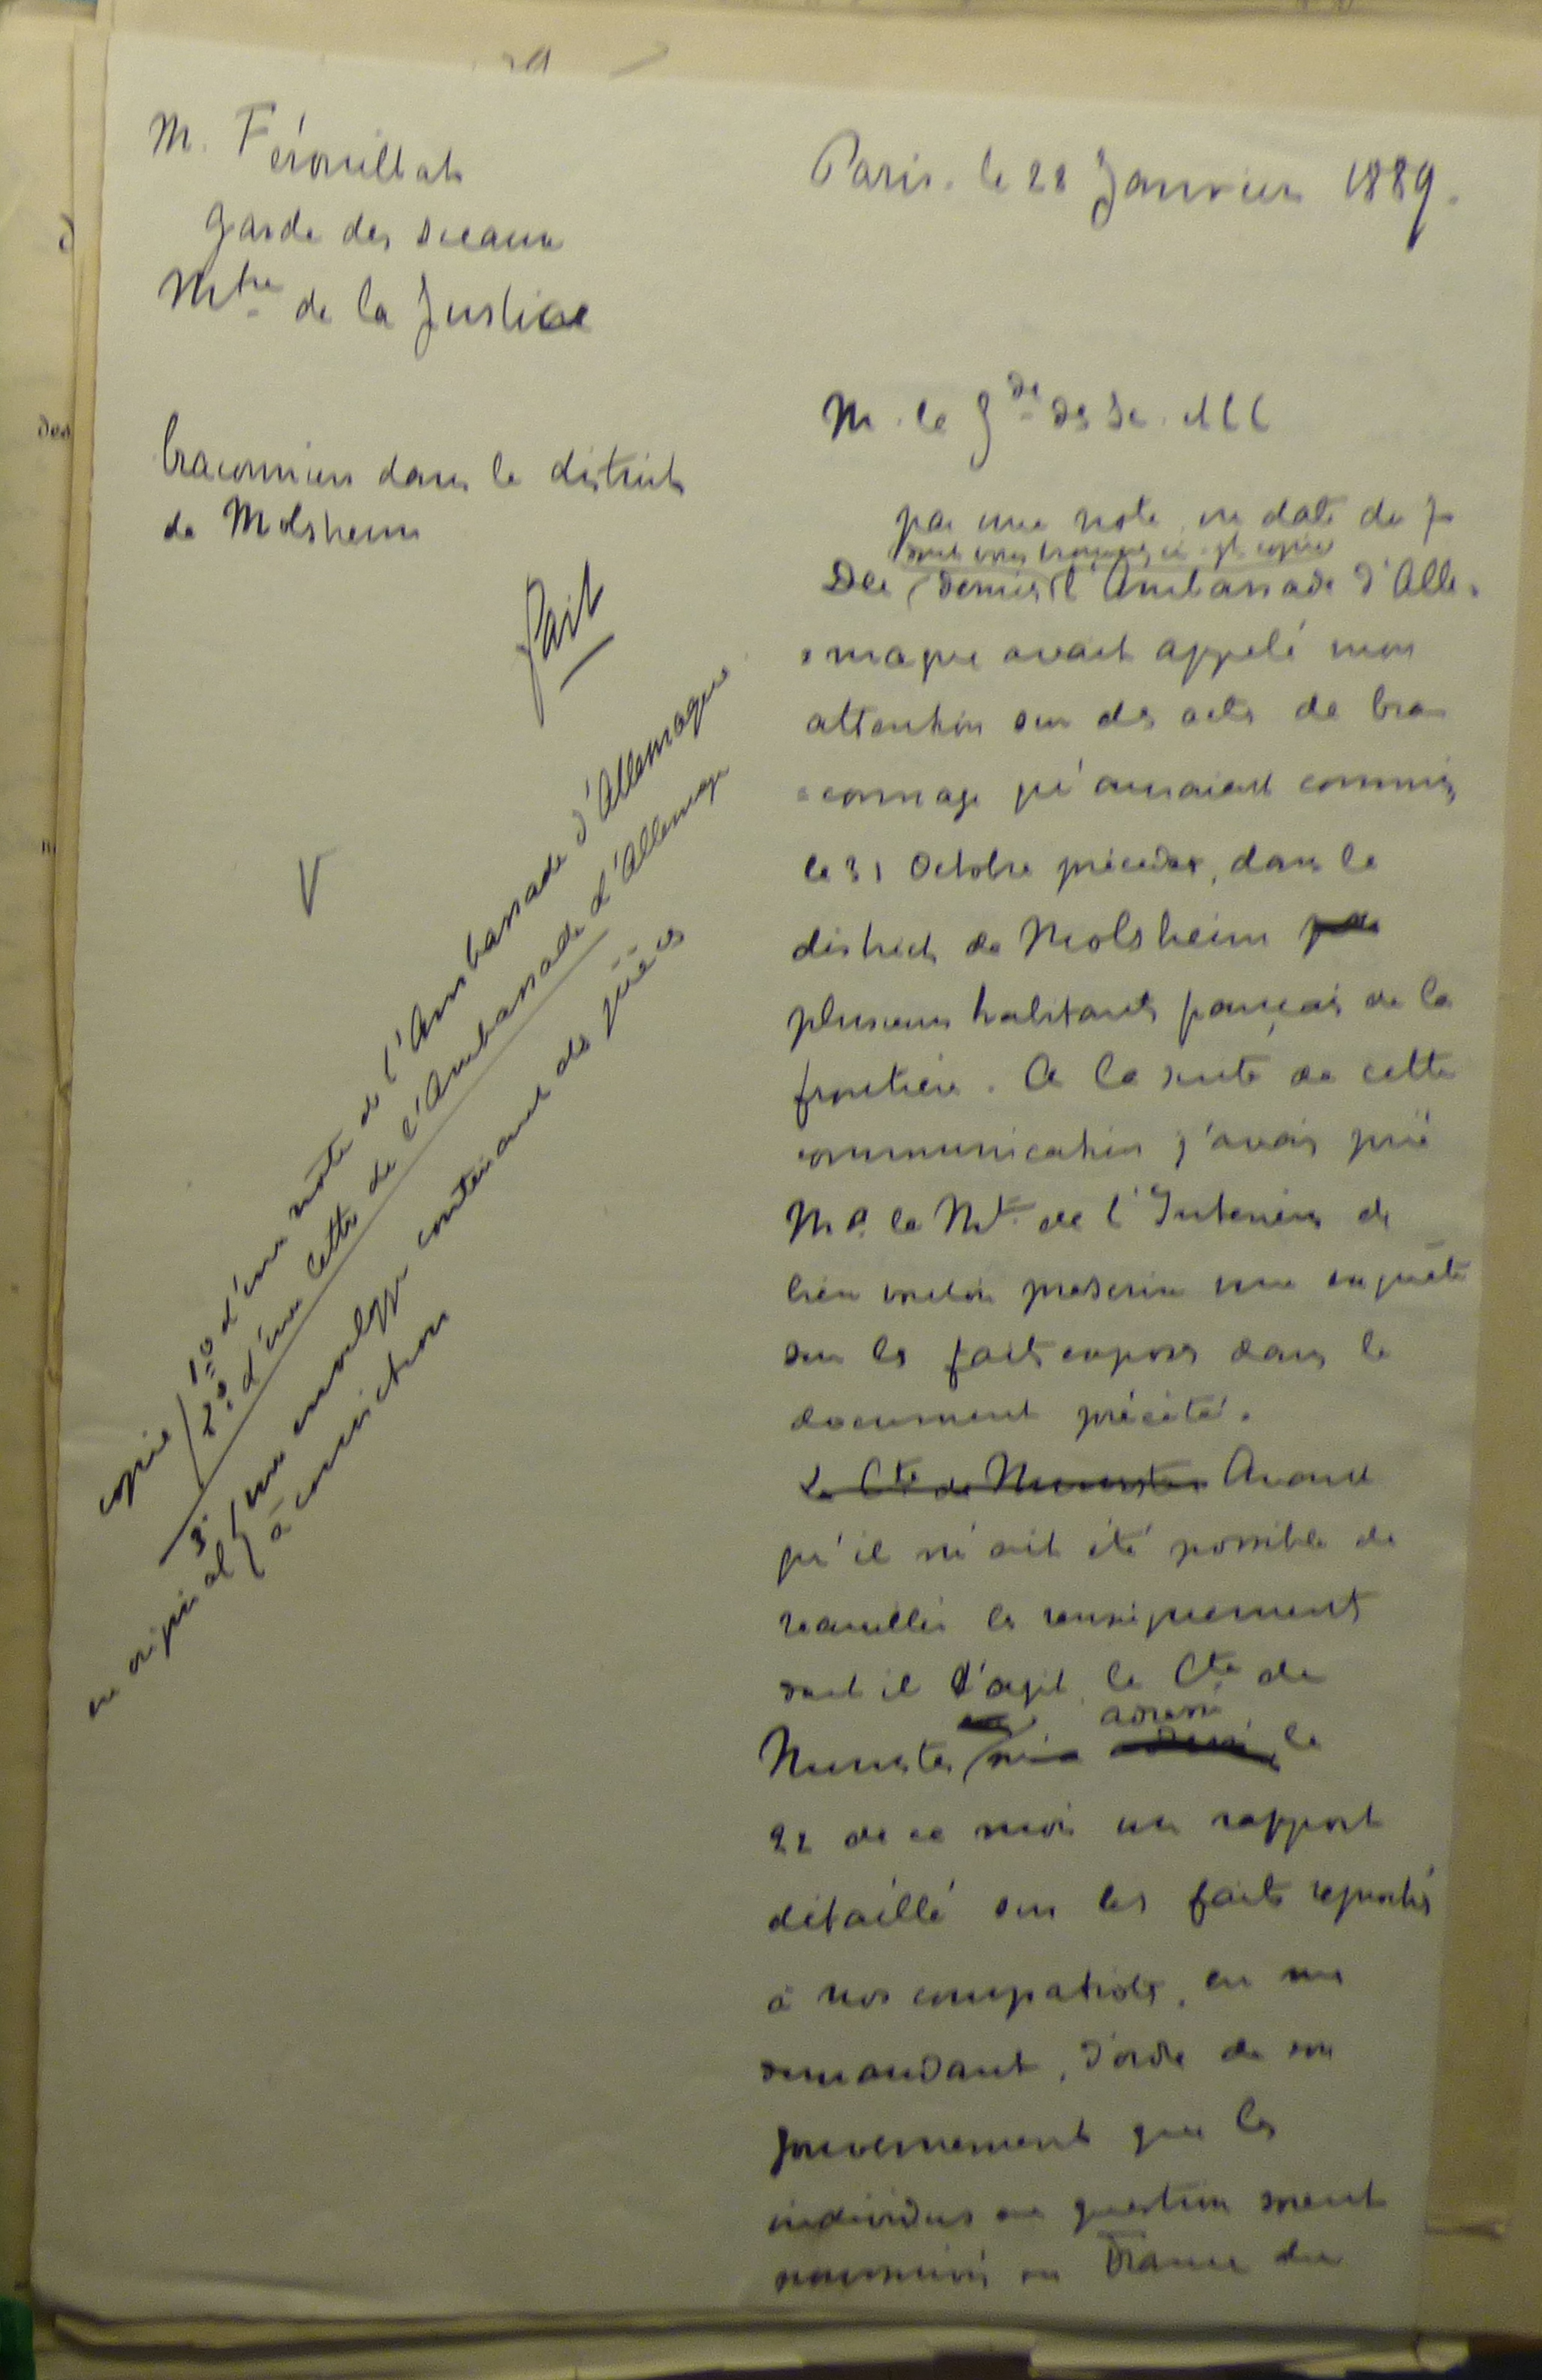 M. Férouillat
garde des sceaux
Mtre de la Justice
braconniers dans le district
de Molsheim
fait
V
copie 1º d'une note de l'Ambassade d'Allemagne
2º d'une lettre de l'Ambassade d'Allemagne
en original 3º une enveloppe contenant des pièces
à conviction
Paris. le 28 Janvier 1889.
M. le gde des Sc.
par une note en date du 7
dont vous trouverez ci-jt copie
Dec dernier l'Ambassade d'Alle-
-magne avait appelé mon
attention sur des actes de bra
-connage qu'auraient commis,
le 31 Octobre précédent, dans le
district de Molsheim
plusieurs habitants français de la
frontière. A la suite de cette
communication j'avais prié
M. le Mtre de l'Intérieur de
bien vouloir prescrire une enquête
sur les faits exposés dans le
document précité.
Le Cte de Munster Avant
qu'il m'ait été possible de
recueillir les renseignements
dont il s'agit, le Cte de
Munster m'a adressé le
22 de ce mois un rapport
détaillé sur les faits reprochés
à nos compatriotes, en me
demandant, d'ordre de son
gouvernement que les
individus en question soient
poursuivis en France du